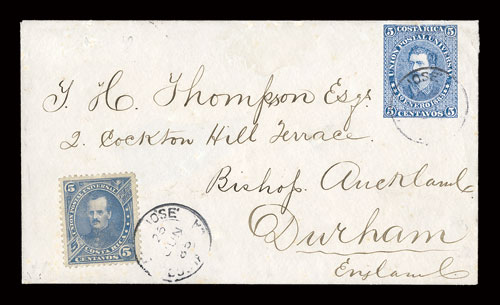 COSTA RICA
5 5
UNION POSTAL UNIVERSAL
1º ENERO 1883
5 5
CENTAVOS
JOSE
T. H. Thompson Esqr.
2. Cockton Hill Terrace.
Bishop Auckland
Durham
England
UNION POSTAL UNIVERSAL
5 5
COSTA RICA
CENTAVOS
JOSE
26
JUN